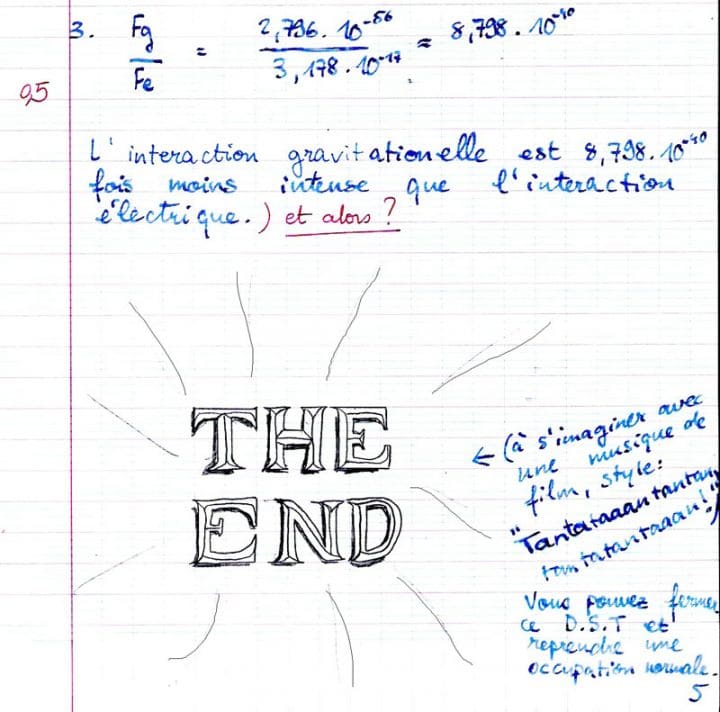 3. Fg / Fe = 2,796 . 10^-56 / 3,178 . 10^-17 ≈ 8,798 . 10^-40
0,5
L'interaction gravitationelle est 8,798.10^-40
fois moins intense que l'interaction
électrique.) et alors ?
THE
END
← (à s'imaginer avec
une musique de
film, style:
"Tantataaantantan,
tantatantaaan!")
Vous pouvez fermer
ce D.S.T et
reprendre une
occupation normale.
5